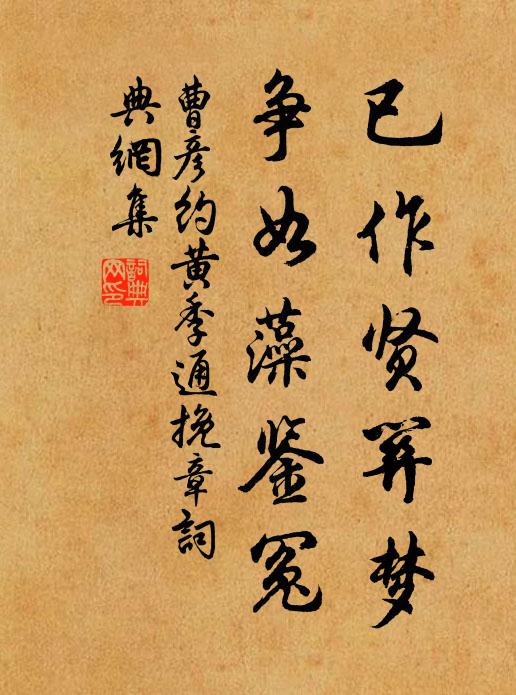 已作贤关梦
争如藻鉴冤
曹彦约黄季通挽章詞
典網集
詞典
网印